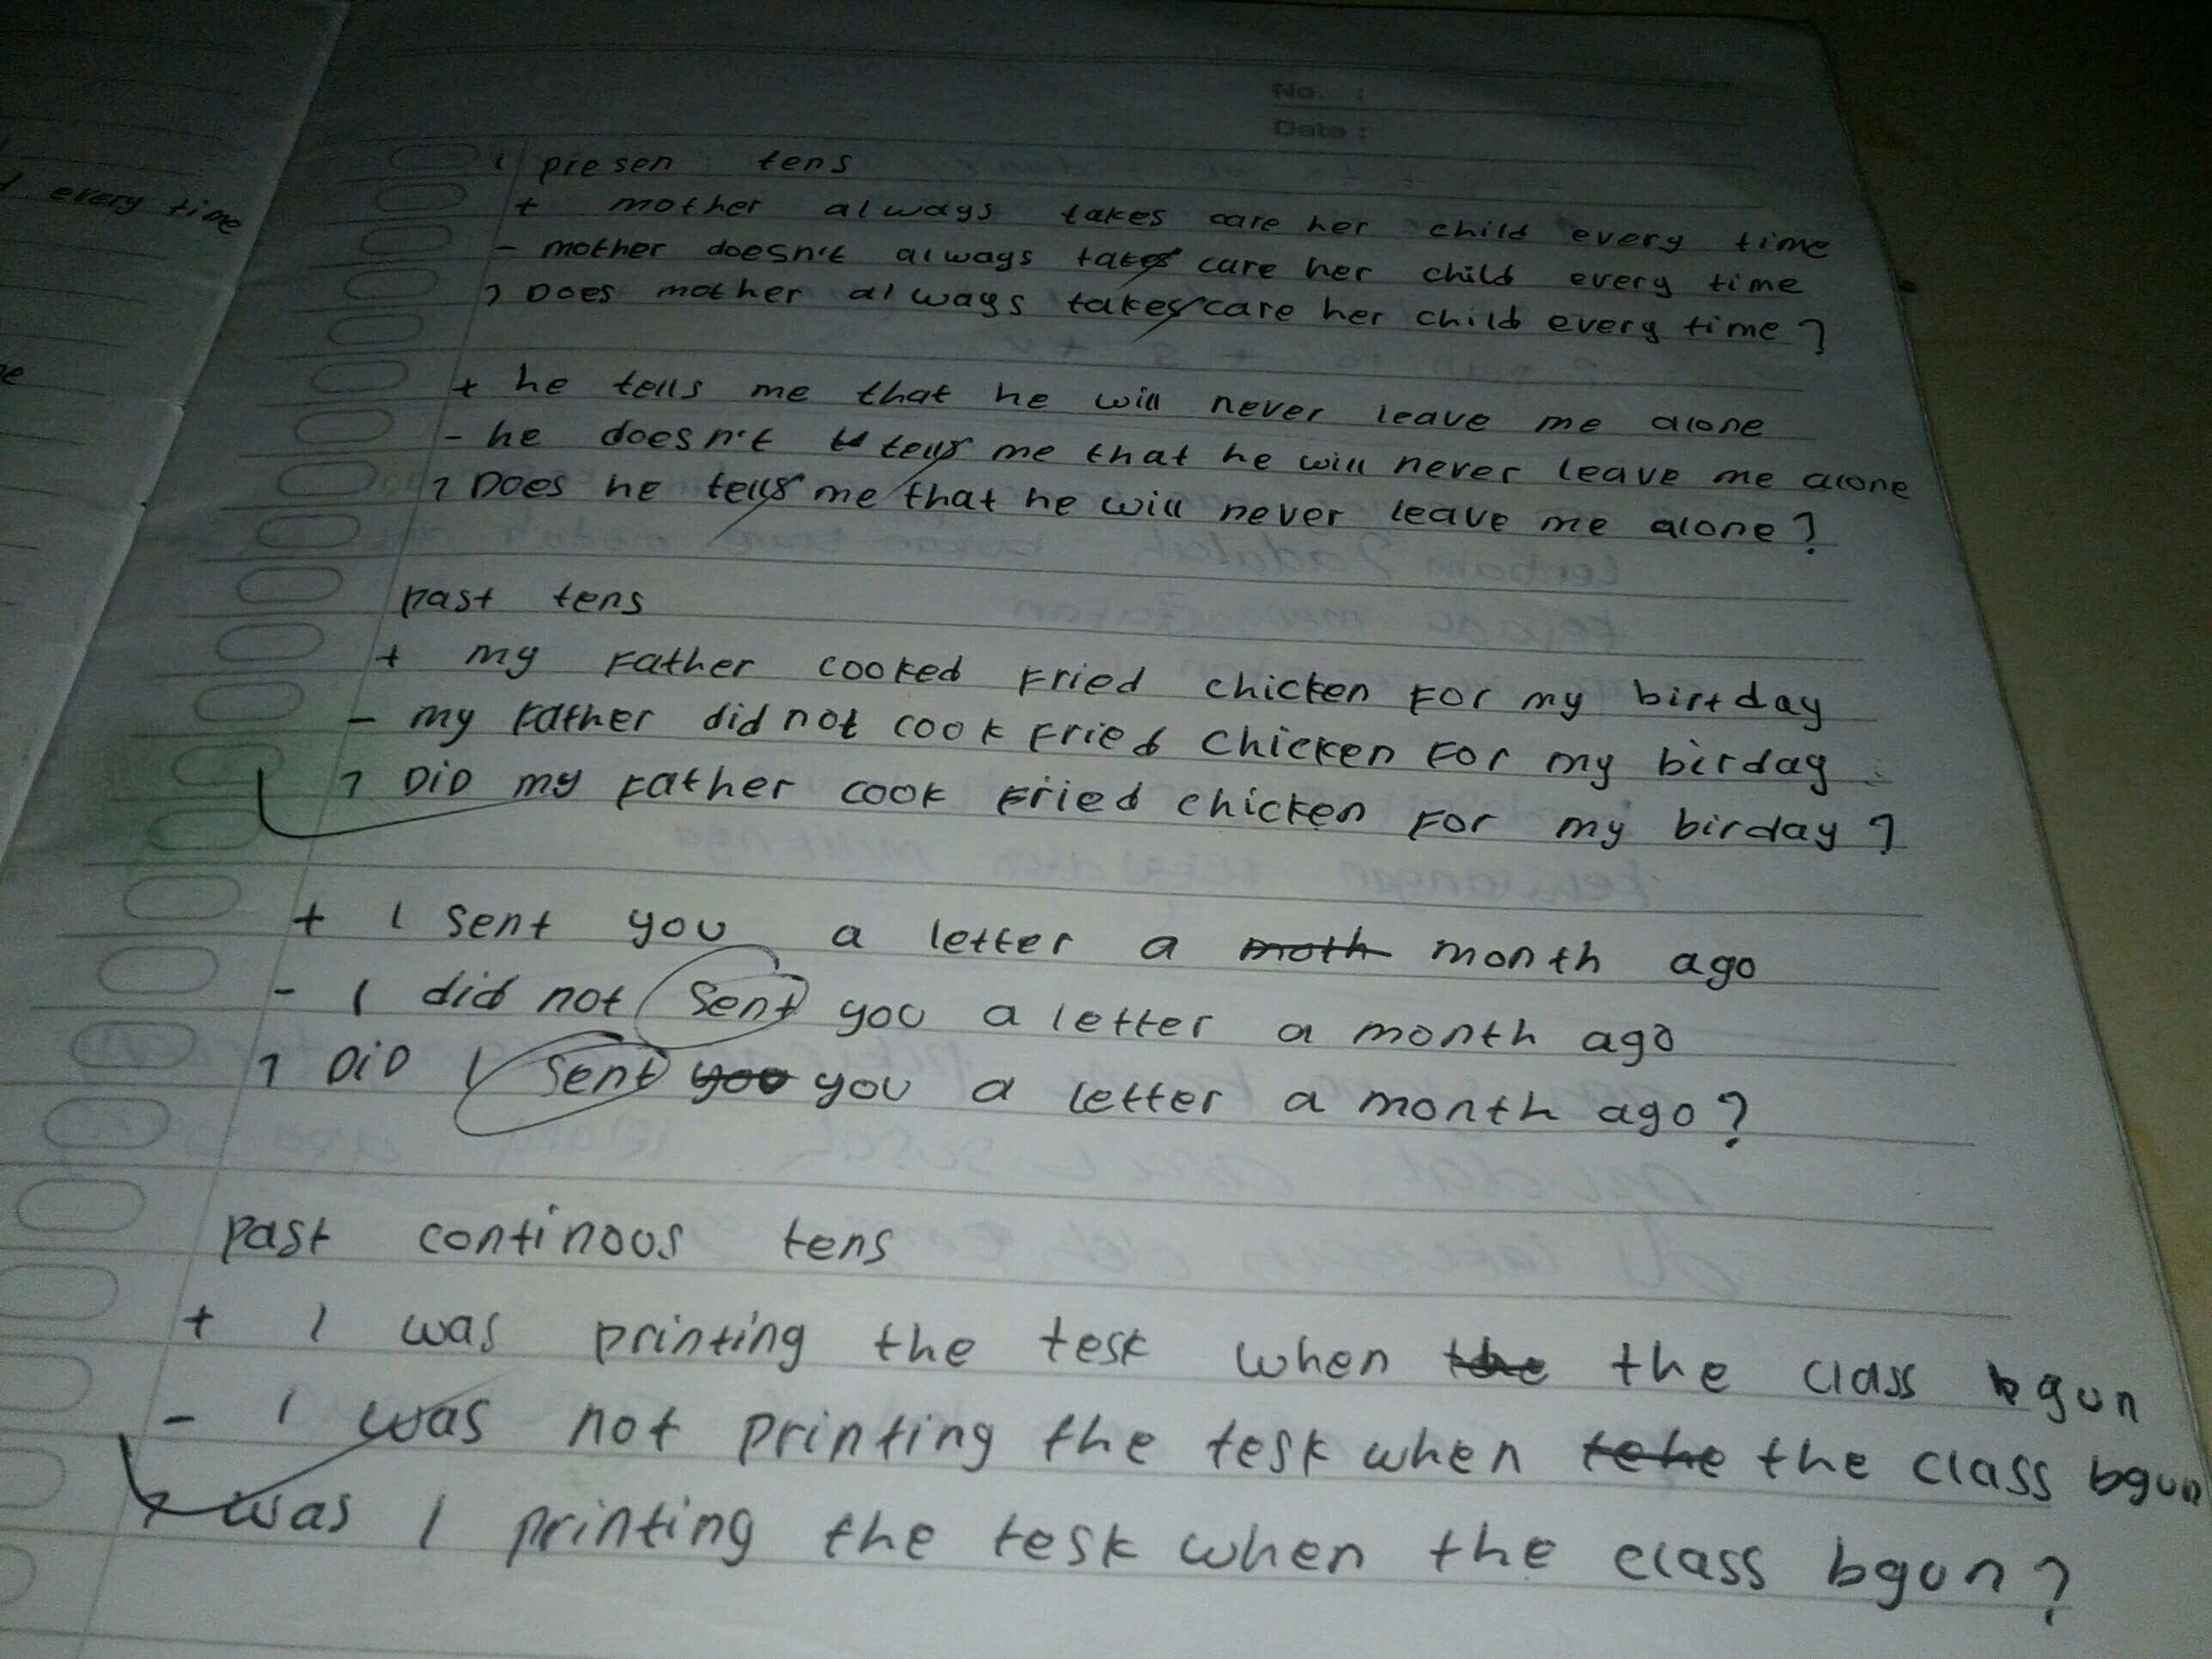 d every time
No. :
Date :
1 presen tens
+ mother always takes care her child every time
- mother doesn't always takes care her child every time
? Does mother always takes care her child every time?
+ he tells me that he will never leave me alone
- he doesn't tells me that he will never leave me alone
? Does he tells me that he will never leave me alone?
past tens
+ my Father cooked Fried chicken For my birtday
- my Father did not cook Fried chicken For my birday
? DiD my Father cook Fried chicken For my birday?
+ I sent you a letter a moth month ago
- I did not sent you a letter a month ago
? DiD I sent you you a letter a month ago?
past continous tens
+ I was printing the tesk when the the class bgun
- I was not printing the tesk when tehe the class bgun
? was I printing the tesk when the class bgun?